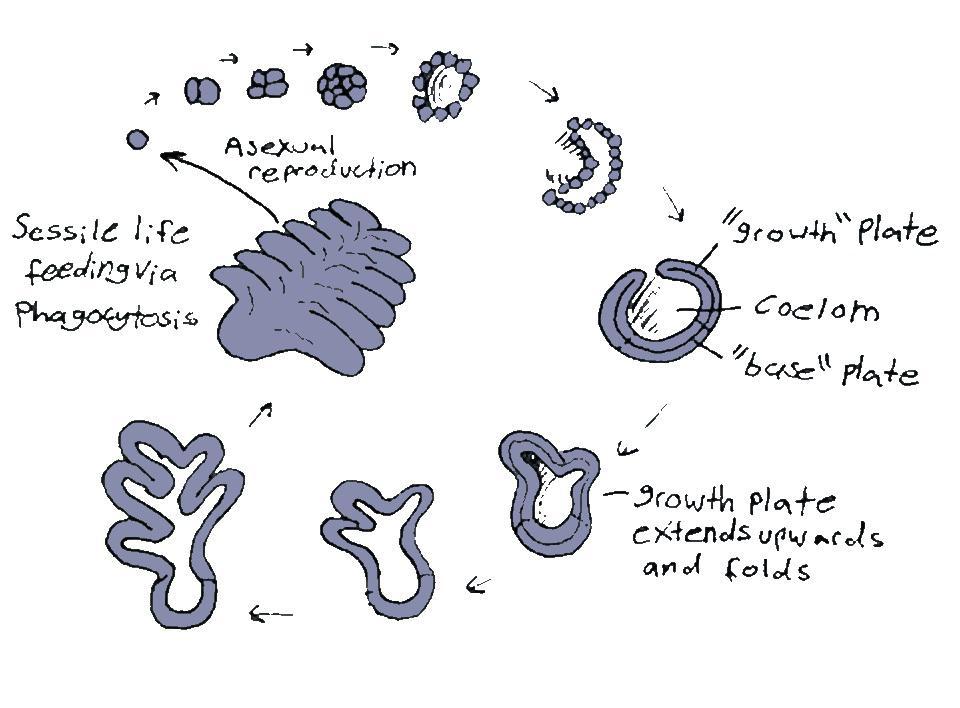 Asexual
reproduction
Sessile life
feeding via
Phagocytosis
"growth" Plate
Coelom
"base" plate
growth plate
extends upwards
and folds